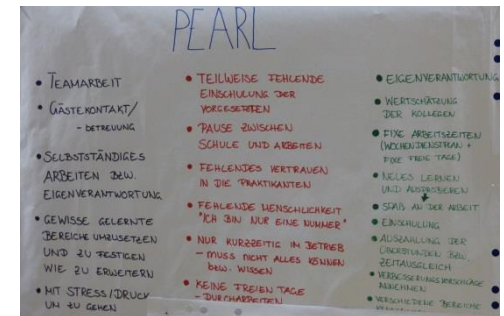 PEARL
• TEAMARBEIT
• GÄSTEKONTAKT/
- BETREUUNG
• SELBSTSTÄNDIGES
ARBEITEN BZW.
EIGENVERANTWORTUNG
• GEWISSE GELERNTE
BEREICHE UMZUSETZEN
UND ZU FESTIGEN
WIE ZU ERWEITERN
• MIT STRESS/DRUCK
UM ZU GEHEN
• TEILWEISE FEHLENDE
EINSCHULUNG DER
VORGESETZTEN
• PAUSE ZWISCHEN
SCHULE UND ARBEITEN
• FEHLENDES VERTRAUEN
IN DIE PRAKTIKANTEN
• FEHLENDE MENSCHLICHKEIT
"ICH BIN NUR EINE NUMMER"
• NUR KURZZEITIG IM BETRIEB
- MUSS NICHT ALLES KÖNNEN
BZW. WISSEN
• KEINE FREIEN TAGE
- DURCHARBEITEN
• EIGENVERANTWORTUNG
• WERTSCHÄTZUNG
DER KOLLEGEN
• FIXE ARBEITSZEITEN
(WOCHENDIENSTPLAN +
FIXE FREIE TAGE)
• NEUES LERNEN
UND AUSPROBIEREN
• SPAß AN DER ARBEIT
• EINSCHULUNG
• AUSZAHLUNG DER
ÜBERSTUNDEN BZW.
ZEITAUSGLEICH
• VERBESSERUNGSVORSCHLÄGE
ANNEHMEN
• VERSCHIEDENE BEREICHE